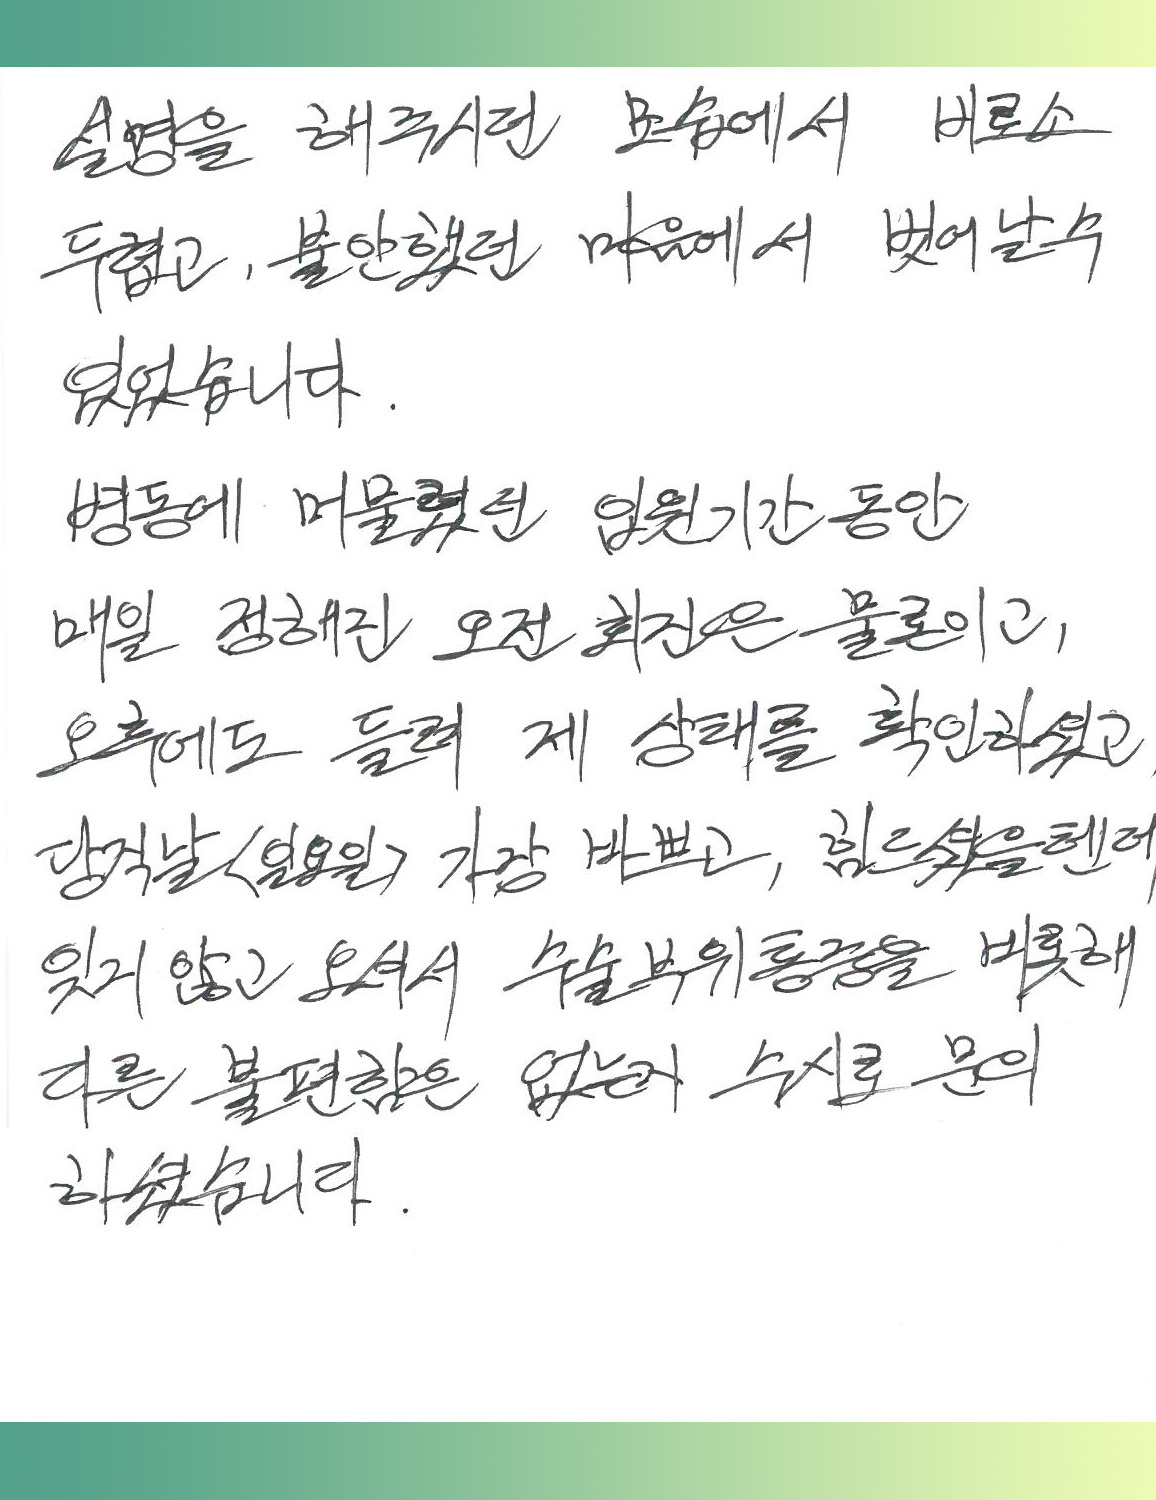 설명을 해주시던 모습에서 비로소
두렵고, 불안했던 마음에서 벗어날수
있었습니다.
병동에 머물렀던 입원기간 동안
매일 정해진 오전 회진은 물론이고,
오후에도 들려 제 상태를 확인하셨고,
당직날<일요일> 가장 바쁘고, 힘드셨을텐데
잊지 않고 오셔서 수술부위통증을 비롯해
다른 불편함은 없는지 수시로 문의
하셨습니다.